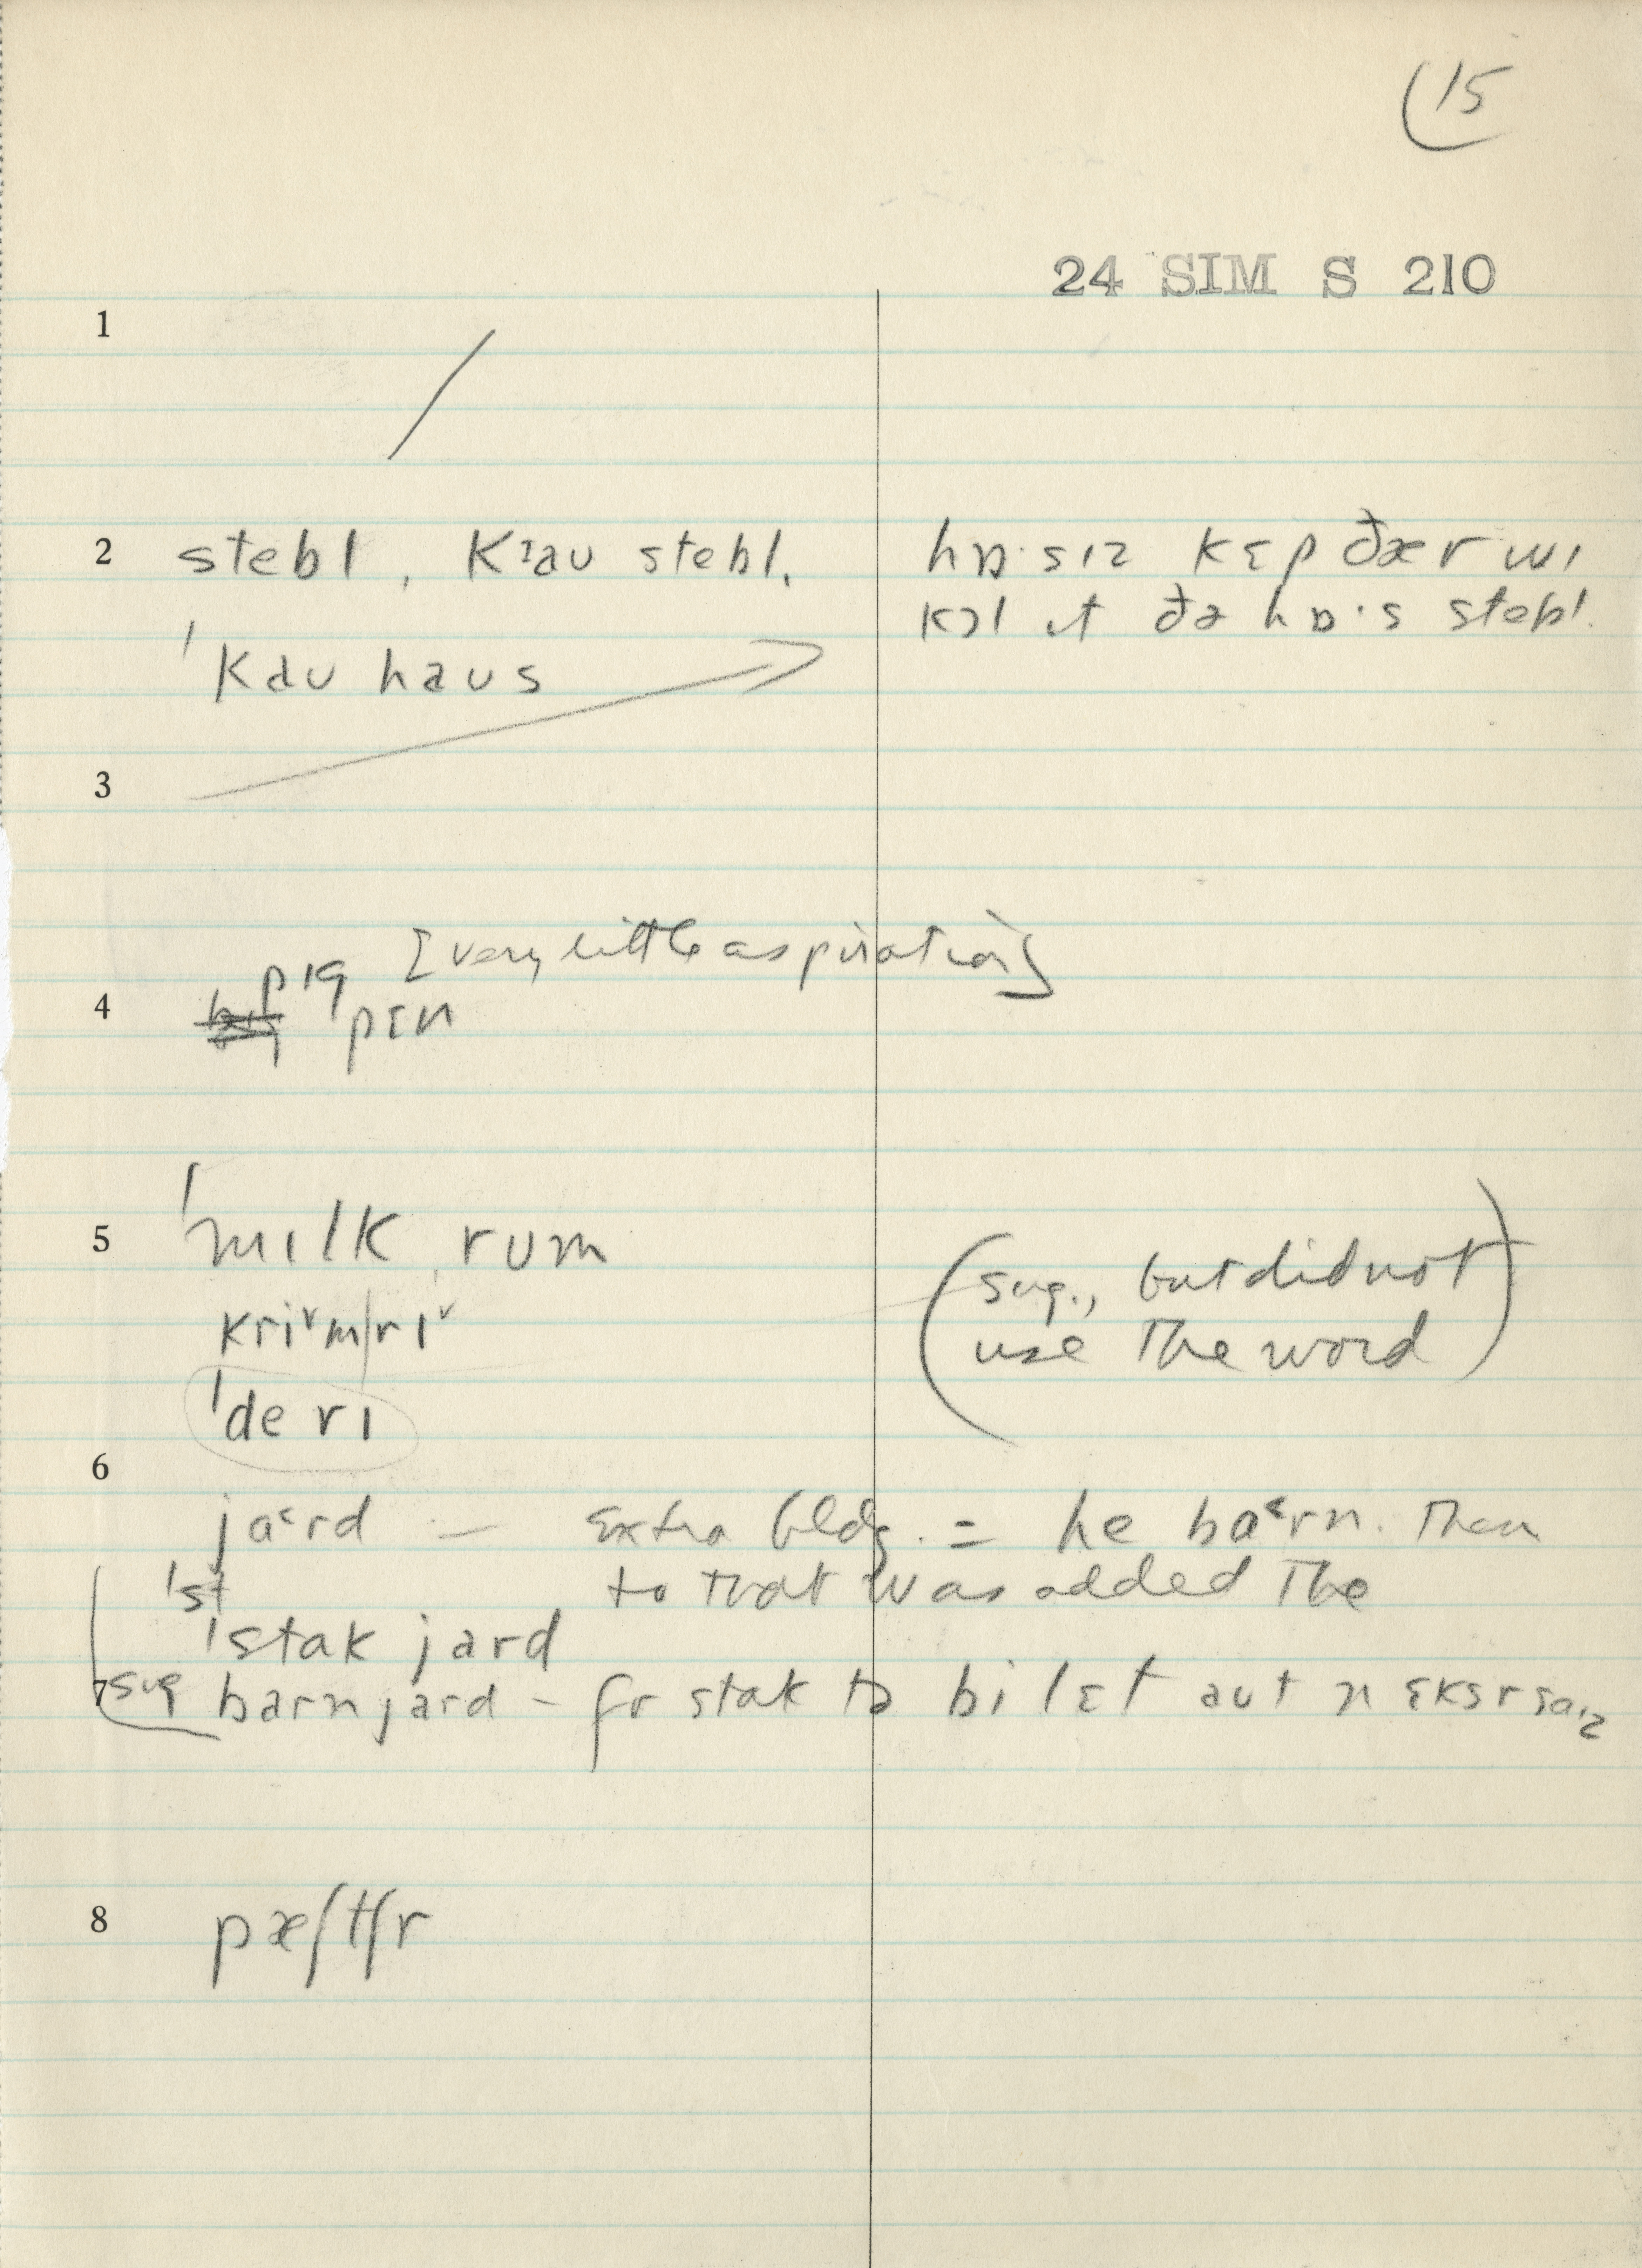 (15
24 SIM S 210
1
2 stebl, kɪau stebl. hɒ·sɪz kɛp ðær wɪ
kɔl ɪt ðə hɒ·s stebl.
ˈkau haus
3
[very little aspiration]
pɪg
4 pɛn
5 ˈmɪlk rum
kri˅m|rɪ˅ (sug., but did not
use the word)
ˈde rɪ
6
ja˂rd — Extra bldg. = he ba˂rn. Then
ˈst to that was added the
ˈstak jard
7 sug barnjard – fr stak tə bi lɛt aut n ɛksrsaɪz
8 pæʃtʃr